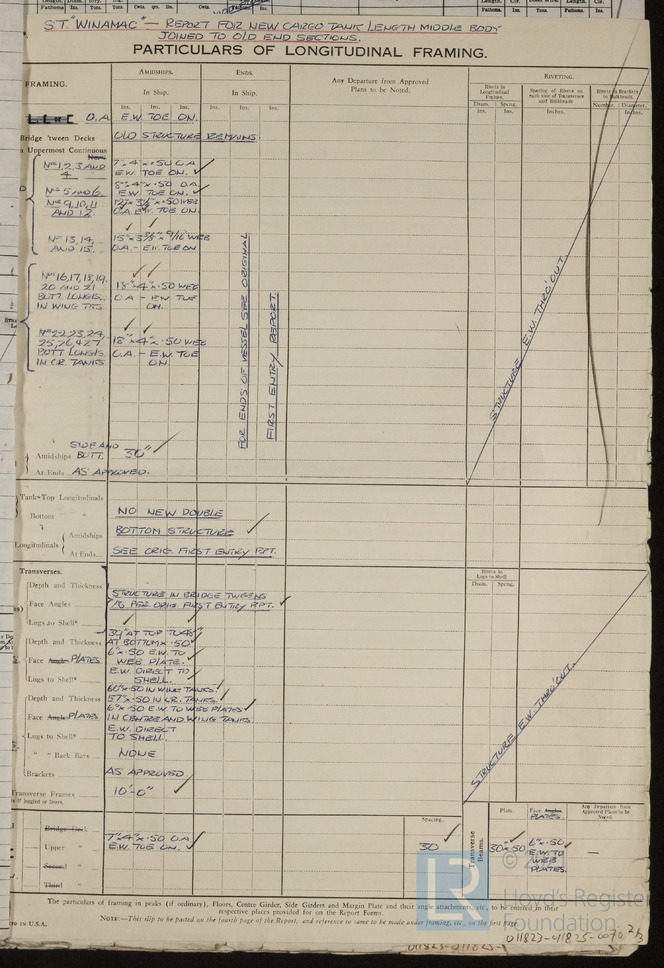 ST "WINAMAC" - REPORT FOR NEW CARGO TANK LENGTH MIDDLE BODY
JOINED TO OLD END SECTIONS.
PARTICULARS OF LONGITUDINAL FRAMING.
FRAMING.
AMIDSHIPS.
ENDS.
Any Departure from Approved
Plans to be Noted.
RIVETING.
In Ship.
In Ship.
Rivets in Longitudinal Frames.
Spacing of Rivets on each side of Transverse and Bulkheads
Rivets in Brackets to Bulkheads.
Ins. Ins. Ins. Ins. Ins. Ins.
Diam. Spcng. Inches. Number. Diameter.
Ins. Ins. Inches.
O.A. E.W. TOE ON.
Bridge 'tween Decks OLD STRUCTURE REMAINS.
Uppermost Continuous
Nos 1, 2, 3 AND 4 7" 4" x .50 O.A.
E.W. TOE ON. ✓
Nos 5 AND 6 8" 4" x .50 O.A.
E.W. TOE ON. ✓
Nos 9, 10, 11 AND 12. 12" x 3½" x .50 WEB
O.A. E.W. TOE ON.
Nos 13, 14, AND 15. 15" x 3⅜" x 9/16 WEB
O.A. - E.W. TOE ON
Nos 16, 17, 18, 19, 20 AND 21 18" x 4" x .50 WEB
BOTT. LONGLS. O.A - E.W. TOE
IN WING TKS. ON.
Nos 22, 23, 24, 25, 26, & 27 18" x 4" x .50 WEB
BOTT LONGLS. O.A. - E.W. TOE
IN CR. TANKS. ON
FOR ENDS OF VESSEL SEE ORIGINAL
FIRST ENTRY REPORT.
STRUCTURE E.W. THRO'OUT.
SIDE AND
Amidships BOTT. 30" ✓
At Ends AS APPROVED.
Tank-Top Longitudinals
Bottom " NO NEW DOUBLE
Longitudinals Amidships BOTTOM STRUCTURE ✓
At Ends... SEE ORIG. FIRST ENTRY RPT.
Transverses.
Rivets in Lugs to Shell
Diam. Spcng.
Depth and Thickness STRUCTURE IN BRIDGE TWEENS
Face Angles AS PER ORIG. FIRST ENTRY RPT. ✓
Lugs to Shell*
Depth and Thickness 39" AT TOP TO 48" AT BOTTOM x .50"
Face Angle PLATES 6" x .50 E.W. TO
WEB PLATE. ✓
Lugs to Shell* E.W. DIRECT TO
SHELL.
Depth and Thickness 66" x .50 IN WING TANKS. ✓
57" x .50 IN CR. TANKS. ✓
Face Angle PLATES 6" x .50 E.W. TO WEB PLATES ✓
IN CENTRE AND WING TANKS.
Lugs to Shell* E.W. DIRECT
TO SHELL.
" " Back Bars NONE
Brackets AS APPROVED
Transverse Frames 10'-0" ✓
if joggled or liners.
STRUCTURE E.W. THRO'OUT.
Spacing.
Transverse Beams.
Plate.
Face Angles. PLATES.
Any Departure from Approved Plans to be Noted.
Bridge Deck
Upper " 7" 4" x .50 O.A. ✓
E.W. TOE ON.
30 ✓
30" x .50 ✓
6" x .50 ✓
E.W. TO
WEB
PLATES.
—
Second "
Third "
The particulars of framing in peaks (if ordinary), Floors, Centre Girder, Side Girders and Margin Plate and their angle attachments, etc., to be entered in their
respective places provided for on the Report Form.
NOTE:—This slip to be pasted on the fourth page of the Report, and reference to same to be made under framing, etc., on the first page.
IN U.S.A.
LR
Lloyd's Register
Foundation
011823-011825-0070 2/3